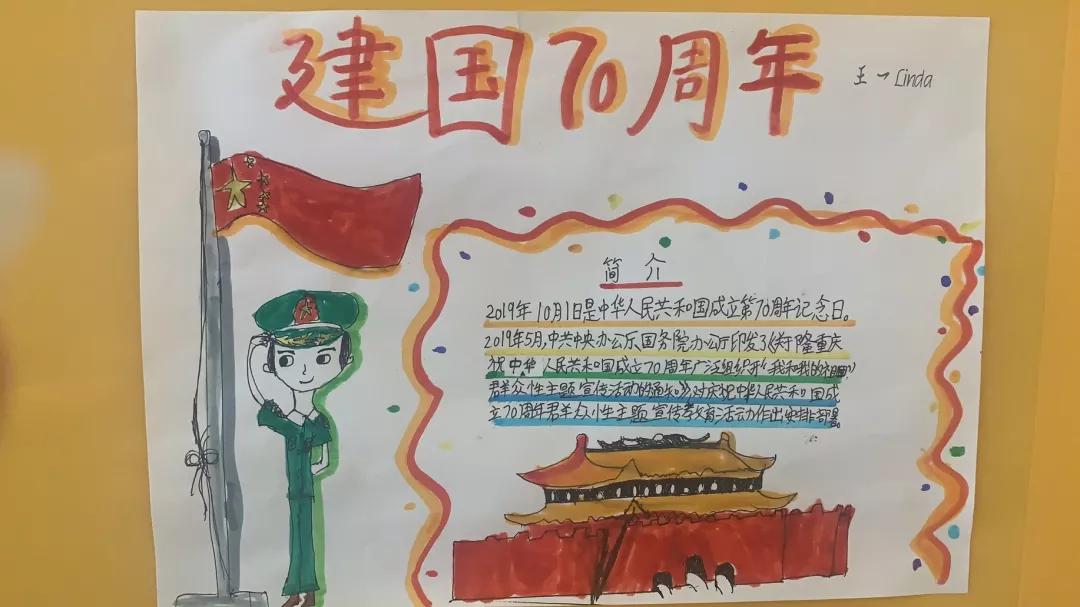 建国70周年
王一Linda
简介
2019年10月1日是中华人民共和国成立第70周年记念日。
2019年5月,中共中央办公厅、国务院办公厅印发了《关于隆重庆
祝中华人民共和国成立70周年广泛组织开"我和我的祖国"
群众性主题宣传活动的通知》,对庆祝中华人民共和国成
立70周年群众性主题宣传教育活动作出安排部署。